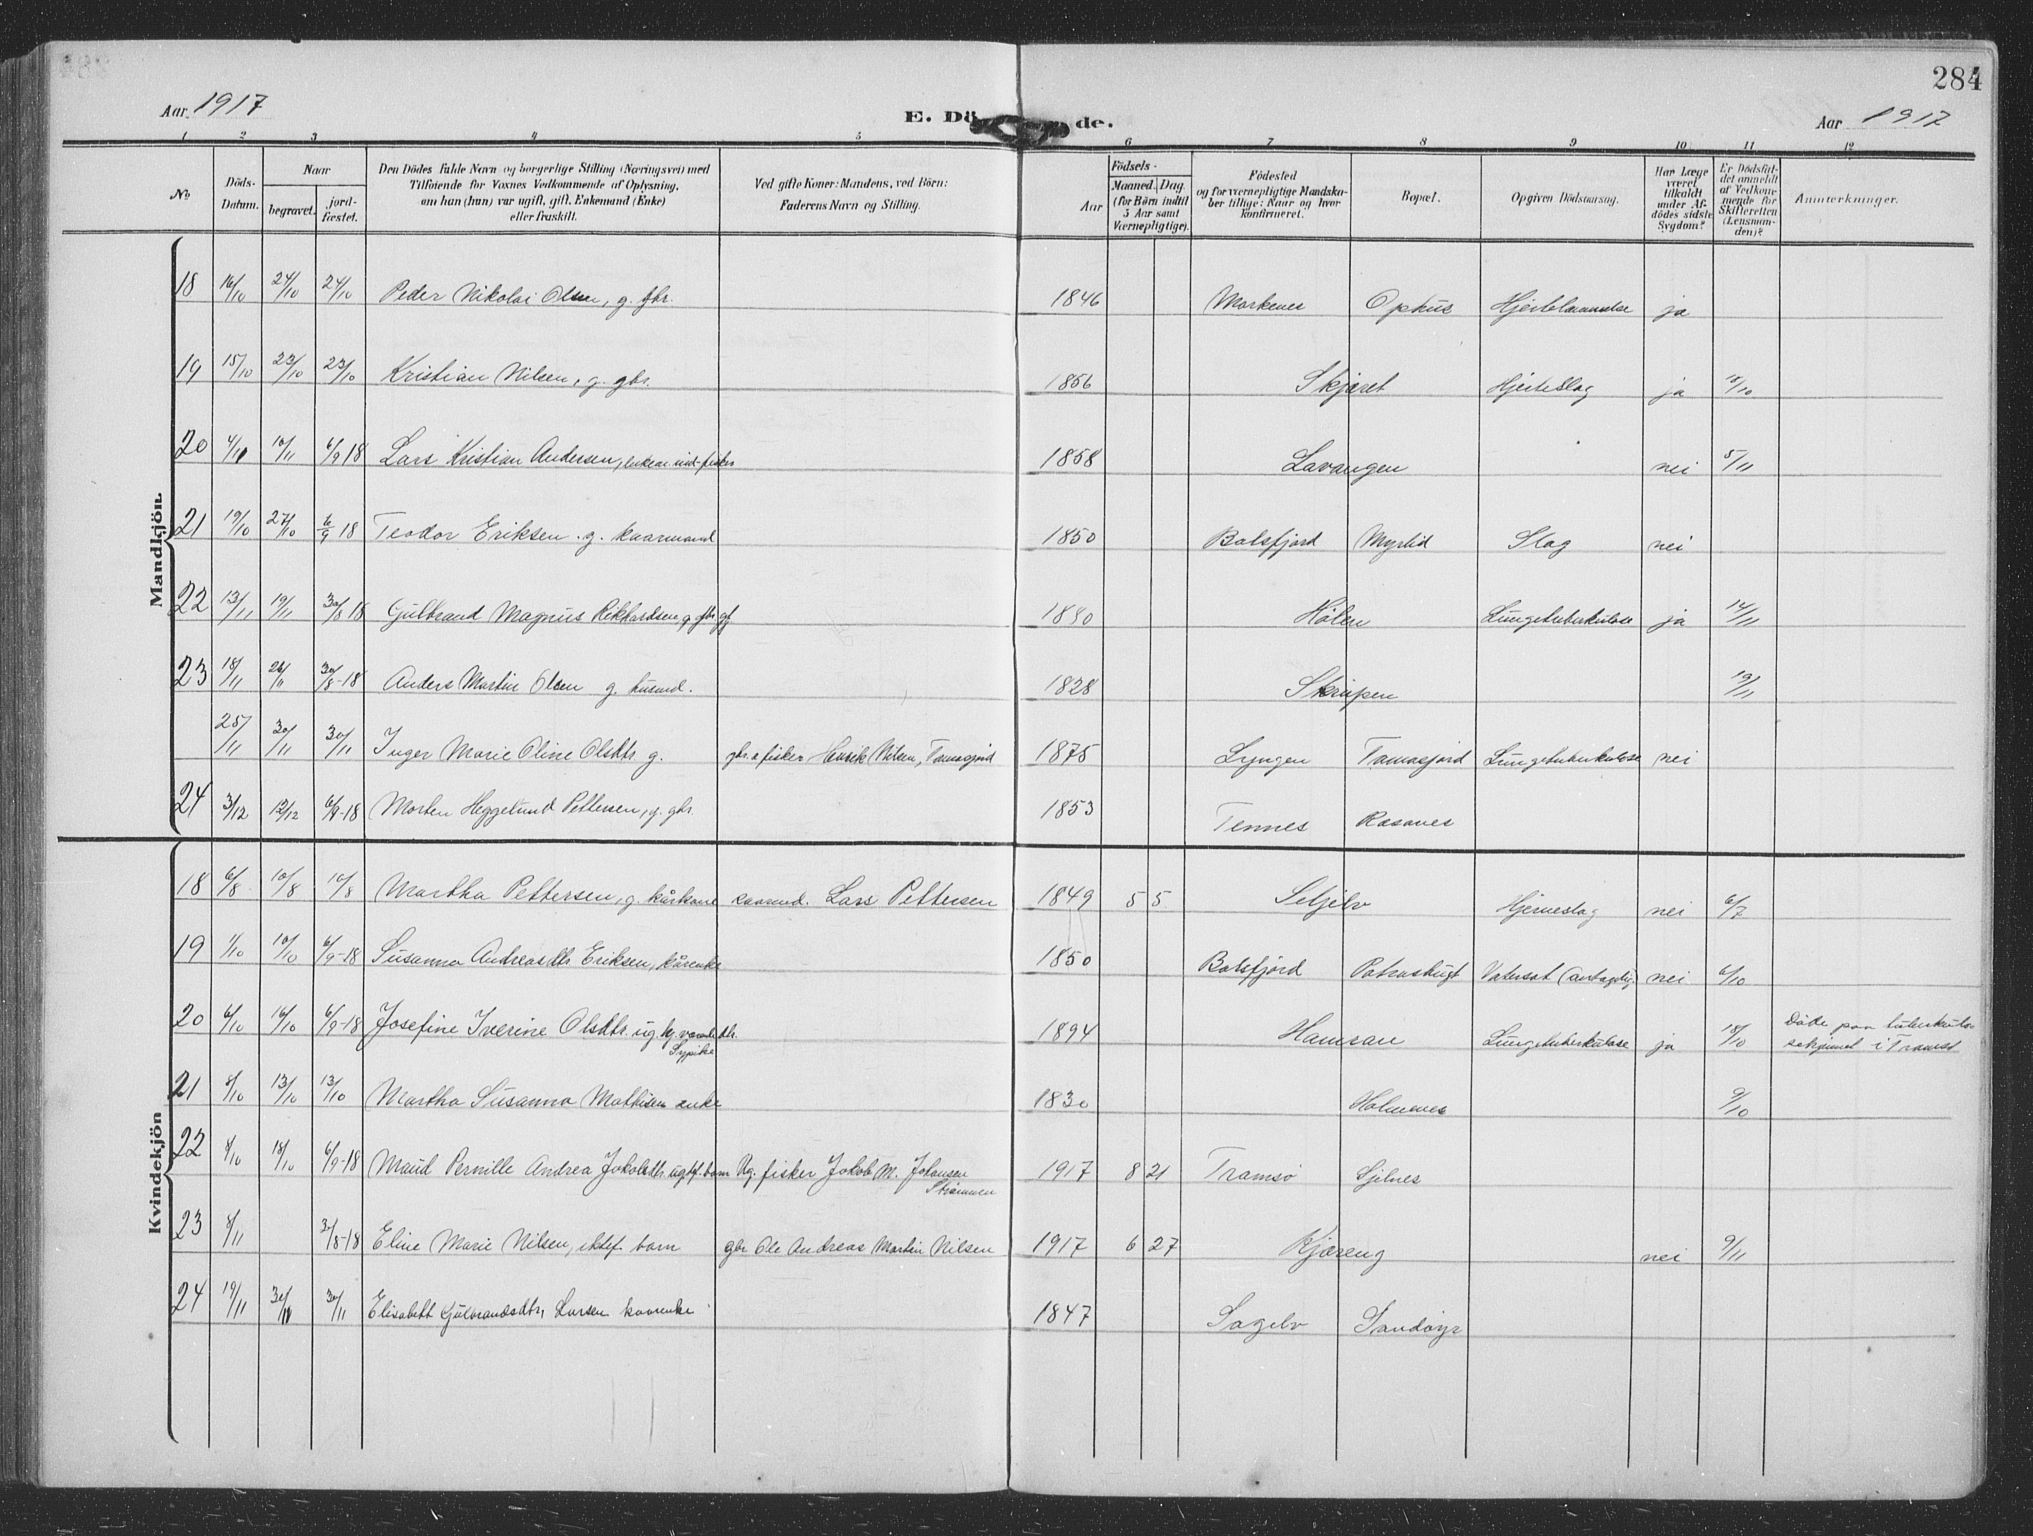 284
Aar 1917
E. Dö de.
Aar 1917
1 2 3 4 5 6 7 8 9 10 11 12
No
Döds-Datum.
Naar
begravet.
jord-fæstet.
Den Dödes fulde Navn og borgerlige Stilling (Næringsvei) med
Tilföiende for Voxnes Vedkommende af Oplysning,
om han (hun) var ugift, gift, Enkemand (Enke)
eller fraskilt.
Ved gifte Koner: Mandens, ved Börn:
Faderens Navn og Stilling.
Födsels-
Aar
Maaned. Dag.
(for Börn indtil
5 Aar samt
Værnepligtige).
Födested
og for værnepligtige Mandska-
ber tillige: Naar og hvor
konfirmeret.
Bopæl.
Opgiven Dödsaarsag.
Har Læge
været
tilkaldt
under Af-
dödes sidste
Sygdom?
Er Dödsfal-
det anmeldt
af Vedkom-
mende for
Skifteretten
(Lensman-
den)?
Anmærkninger.
Mandkjön.
18 16/10 24/10 24/10 Peder Nikolai Olsen, g. gbr. 1846 Markenes Ophus Hjertelammelse ja
19 15/10 23/10 23/10 Kristian Nilsen, g. gbr. 1856 Skjæret Hjerteslag ja /10
20 4/11 10/11 6/9 18 Lars Kristian Andersen, fisker 1858 Lavangen nei 5/11
21 19/10 27/10 6/9 18 Teodor Eriksen. g. kaarmand 1850 Balsfjord Myrlid Slag nei
22 13/11 19/11 30/8 18 Gulbrand Magnus Rikhardsen g gbr 1880 Holen Lungetuberkulose ja 14/11
23 18/11 26/11 30/8-18 Anders Martin Olsen g. husmd. 1828 Skrupen 19/11
25/11 30/11 30/11 Inger Marie Oline Olsdtr. g. gbr. o fisker Henrik Nilsen, Tamasjord 1875 Lyngen Tamasjord Lungetuberkulose nei
24 3/12 12/12 6/9-18 Morten Heggelund Pettersen, g. gbr. 1853 Tennes Russenes
Kvindekjön
18 6/8 10/8 10/8 Martha Pettersen, g. kårkone kaarmd. Lars Pettersen 1849 5 5 Seljelv Hjerneslag nei 6/7
19 1/10 10/10 6/9-18 Susanna Andreasdtr Eriksen, kårenke 1850 Balsfjord Vatersot (antagelig) nei 6/10
20 6/10 16/10 6/9-18 Josefine Iverine Olsdtr. ug. dtr.
Sypike 1894 Hamran Lungetuberkulose ja 18/10 Döde paa tuberkulo-
i Tromsö
21 8/10 13/10 13/10 Martha Susanna Mathisen enke 1830 Holmenes 9/10
22 8/10 18/10 6/9-18 Maud Pernille Andrea Jakobdtr. barn Ug. fisker Jakob M. Johansen
Strömmen 1917 8 21 Tromsö Sjelnes
23 8/11 /8-18 Eline Marie Nilsen, ektef. barn gbr Ole Andreas Martin Nilsen 1917 6 27 Kjæreng nei 9/11
24 19/11 30/11 30/11 Elisabett Gulbrandsdtr, Larsen kaarenke 1847 Sagelv Sandöyr